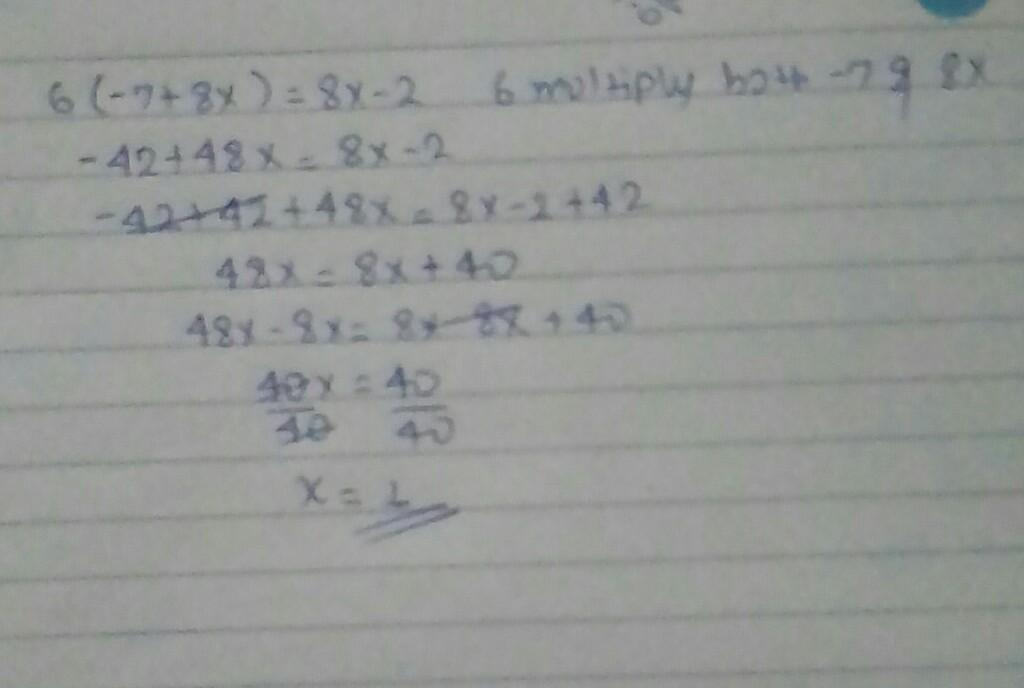 6(-7+8x)=8x-2 6 multiply both -7 & 8x
-42+48x=8x-2
-42+42+48x=8x-2+42
48x=8x+40
48x-8x=8x-8x+40
40x=40
40 40
x=1